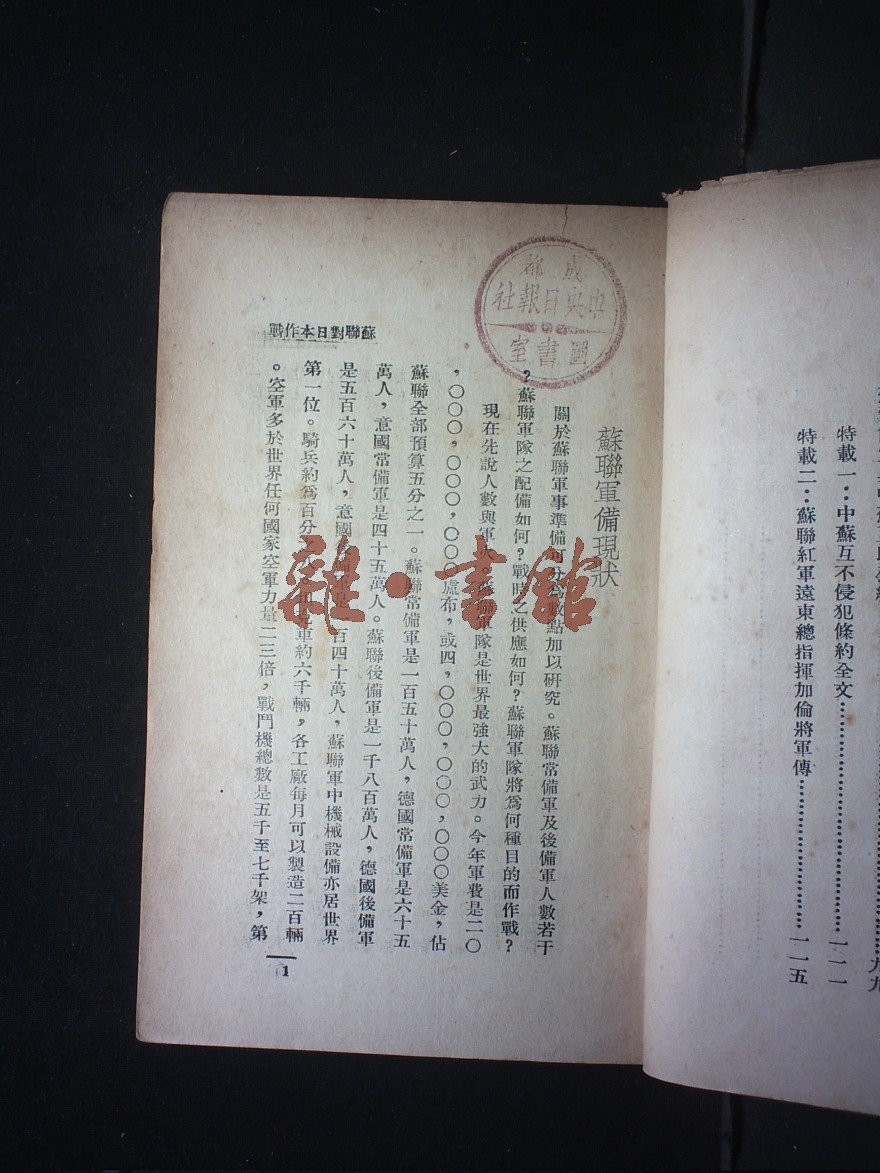 特載一：中蘇互不侵犯條約全文⋯⋯一一一
特載二：蘇聯紅軍遠東總指揮加倫將軍傳⋯⋯一一五
成都
中央日報社
圖書室
蘇聯軍備現狀
關於蘇聯軍事準備可分為數點加以研究。蘇聯常備軍及後備軍人數若干
？蘇聯軍隊之配備如何？戰時之供應如何？蘇聯軍隊將爲何種目的而作戰？
現在先說人數與軍火。蘇聯軍隊是世界最強大的武力。今年軍費是二〇
，〇〇〇，〇〇〇，〇〇〇盧布，或四，〇〇〇，〇〇〇，〇〇〇美金，佔
蘇聯全部預算五分之一。蘇聯常備軍是一百五十萬人，德國常備軍是六十五
萬人，意國常備軍是四十五萬人。蘇聯後備軍是一千八百萬人，德國後備軍
是五百六十萬人，意國後備軍是百四十萬人，蘇聯軍中機械設備亦居世界
第一位。騎兵約爲百分之車約六千輛，各工廠每月可以製造二百輛
。空軍多於世界任何國家空軍力量二三倍，戰鬥機總數是五千至七千架，第
蘇聯對日本作戰
1
雜·書館